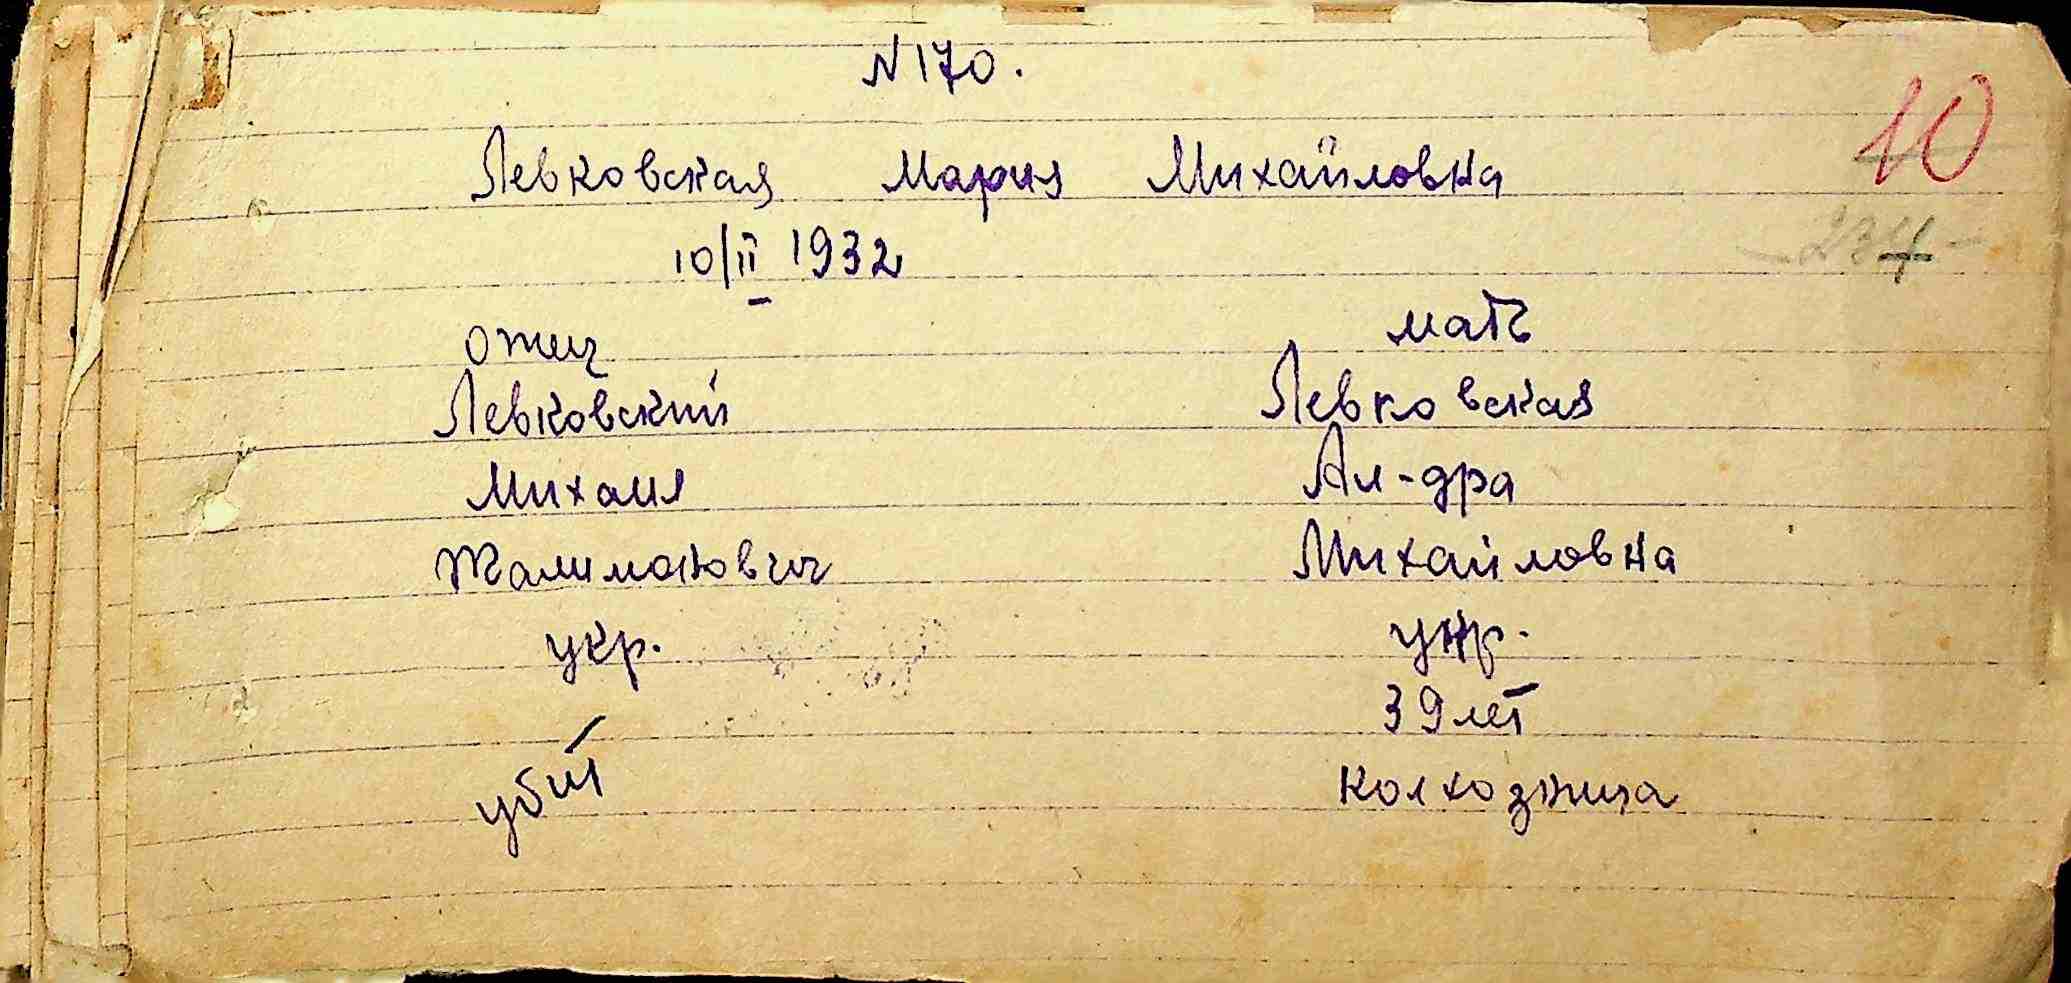 N170.
10
Левковская Мария Михайловна
234
10/II 1932
отец
мать
Левковский
Левковская
Михаил
Ал-дра
Михайловна
укр.
укр.
39 лет
убит
колхозница